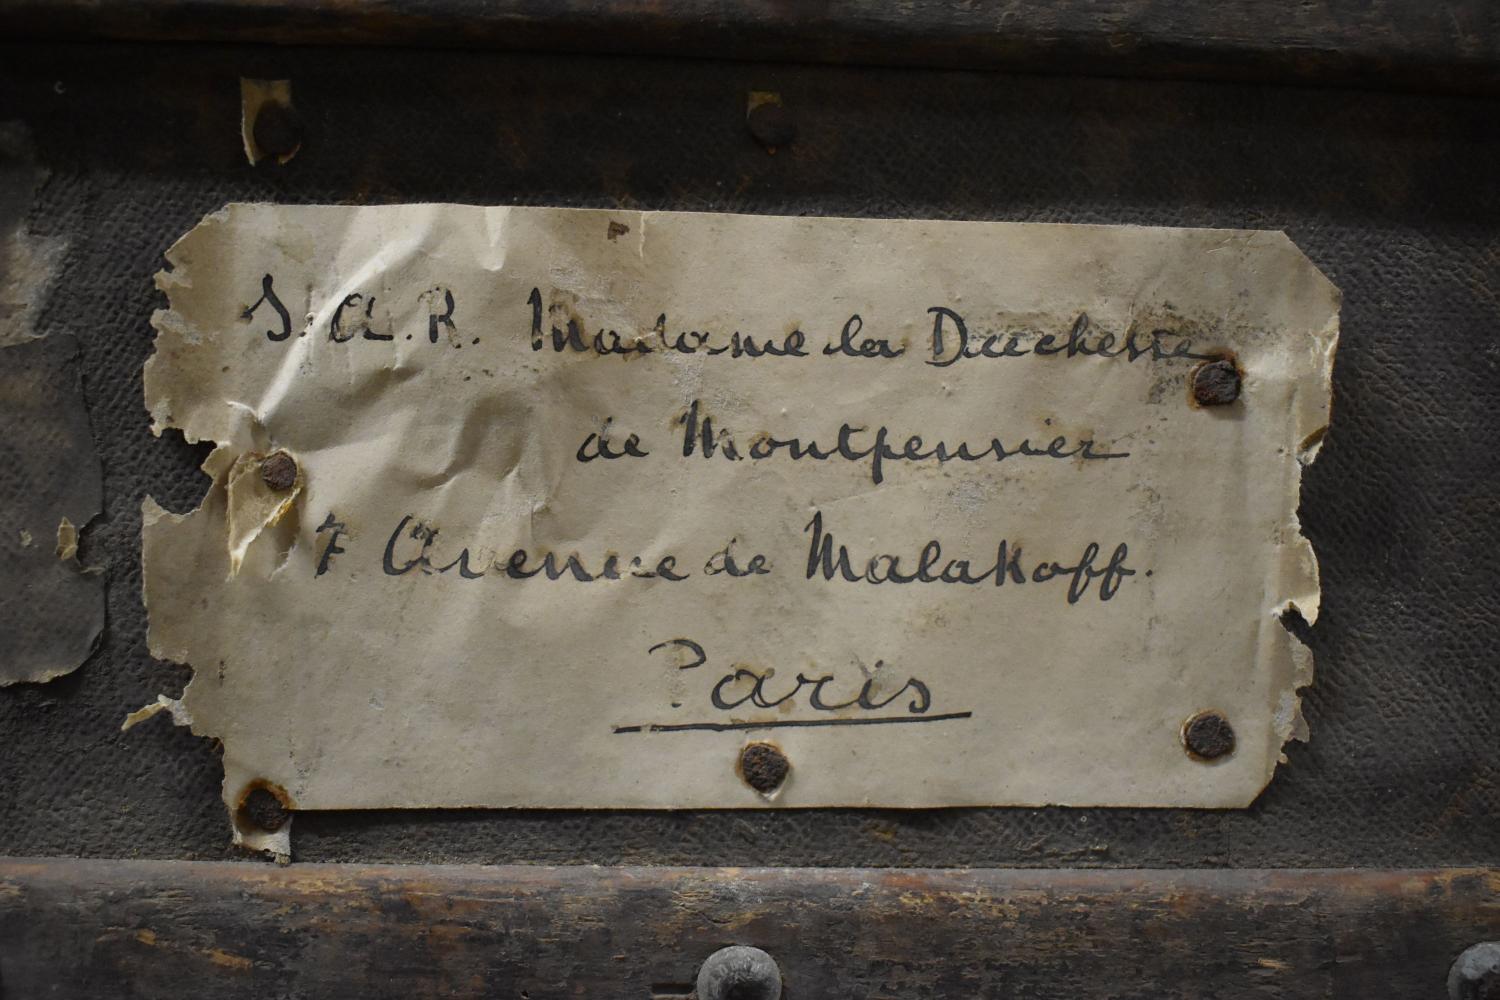 S.A.R. Madame la Duchesse
de Montpensier
7 Avenue de Malakoff.
Paris